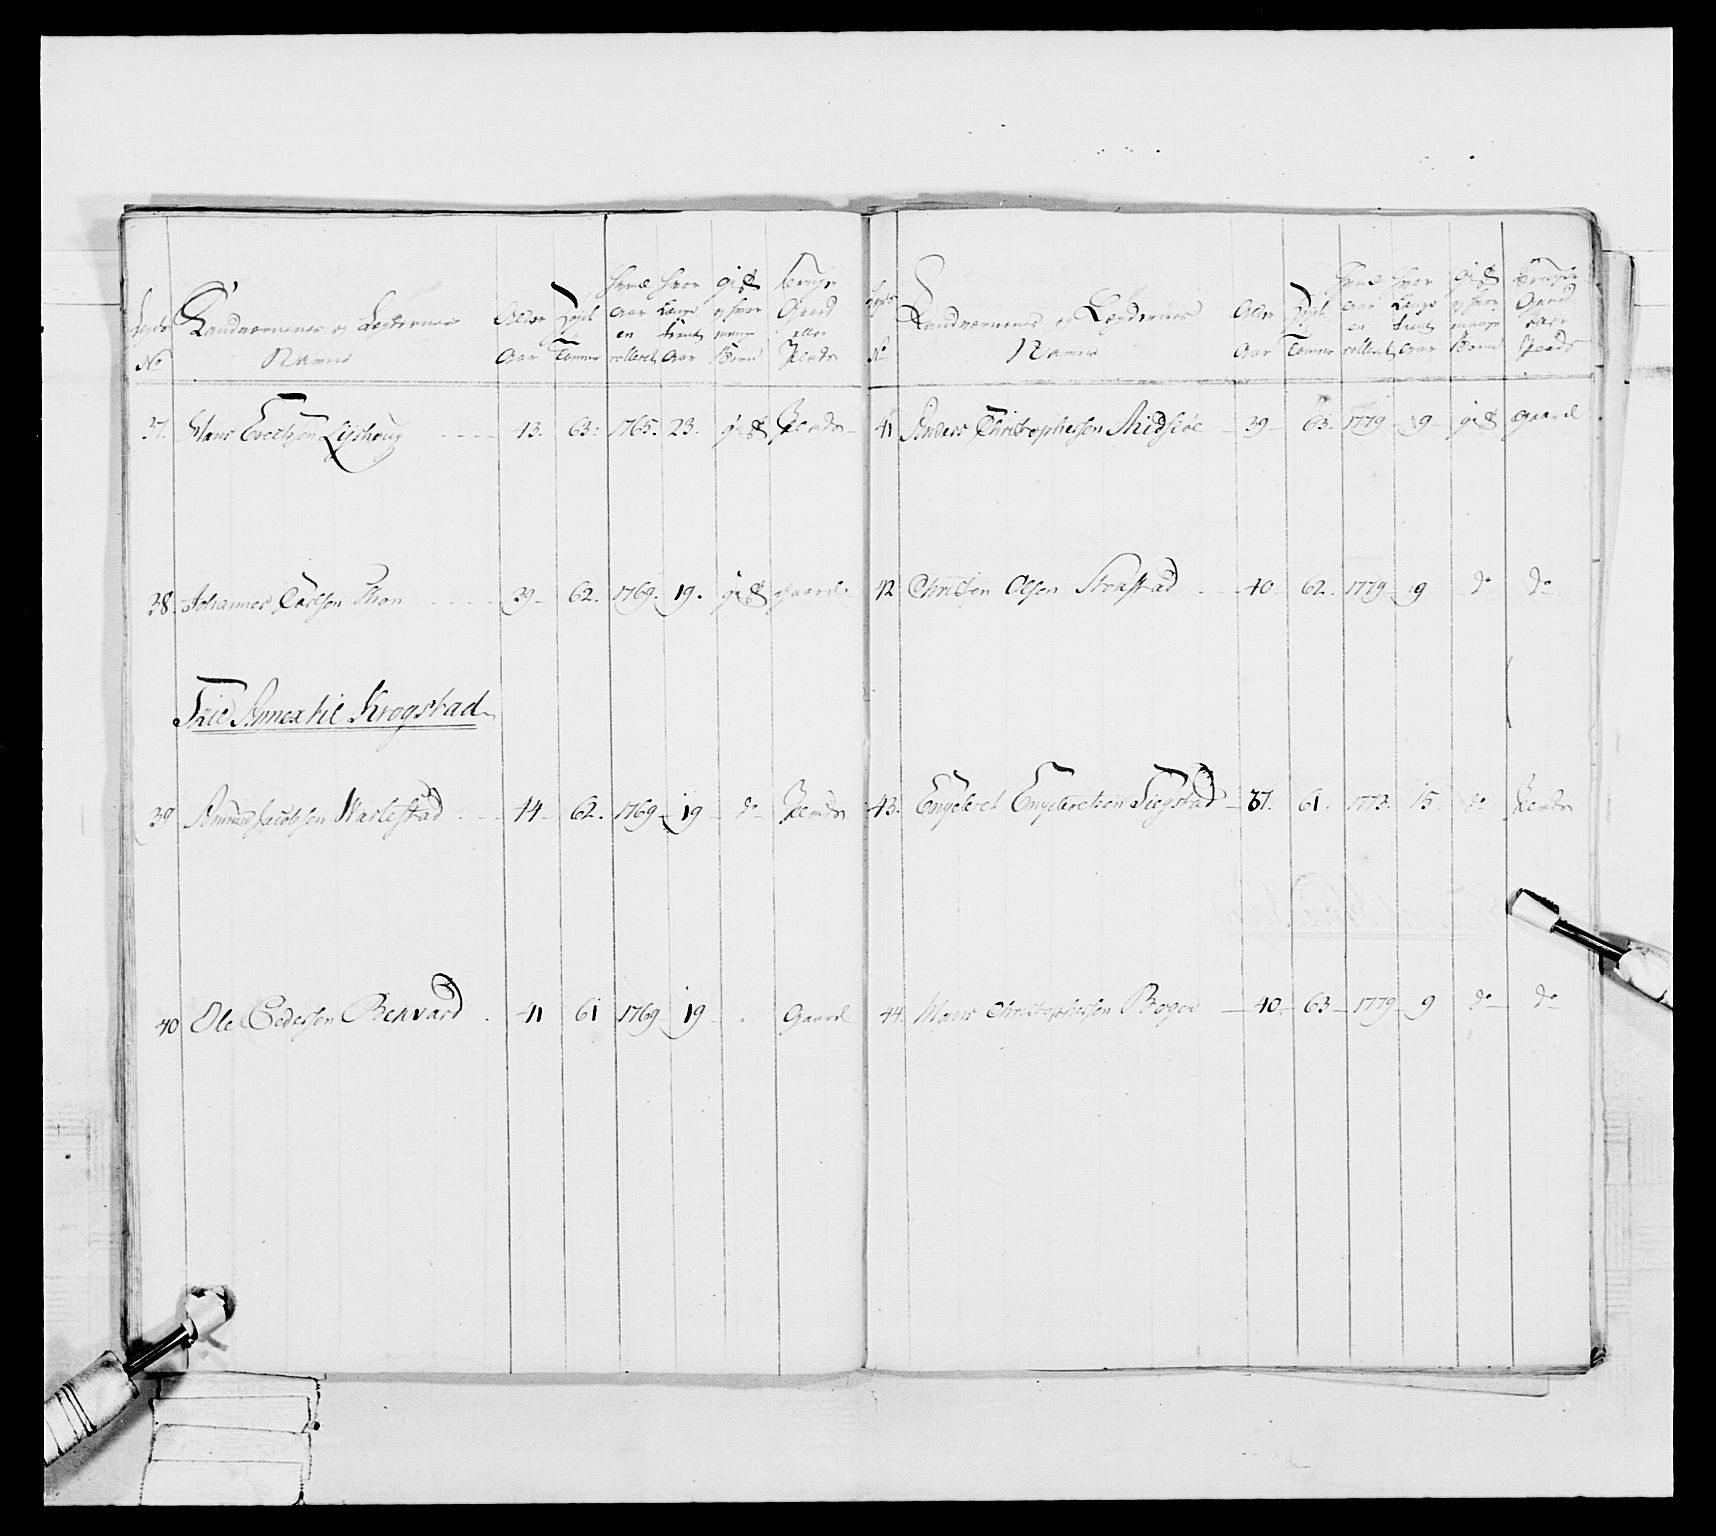 Legds No
Landværnenes og Legdernes Navne
Alder Aar
Tommer
Hvad Aar en rolleret
Hvor Længe tient Aar
gift og hvor mange Børn
bruger Gaard eller Plads
37. Hans Erichsen 43. 63. 1765. 23. gift Plads
38. Johannes Carlsen Thon 39 62. 1769. 19. gift gaard
Krogstad
39 Jacobsen Harlestad 44 62. 1769 19 do Plads
40 Ole Pedersen Bekvard 41 61 1769 19 Gaard
No
Landværnenes og Legdernes Navne
Alder Aar
Tommer
Hvad Aar en rolleret
Hvor Længe tient Aar
gift og hvor mange Børn
bruger Gaard eller Plads
41 Anders Christophersen Midsiøe 39 63. 1779 9 gift gaard
42 Christen Olsen 40 62. 1779 9 do do
43. Engebret Engebretsen 37. 61. 1773. 15. do Plads
44. Hans Christophersen 40 63 1779 9 do do